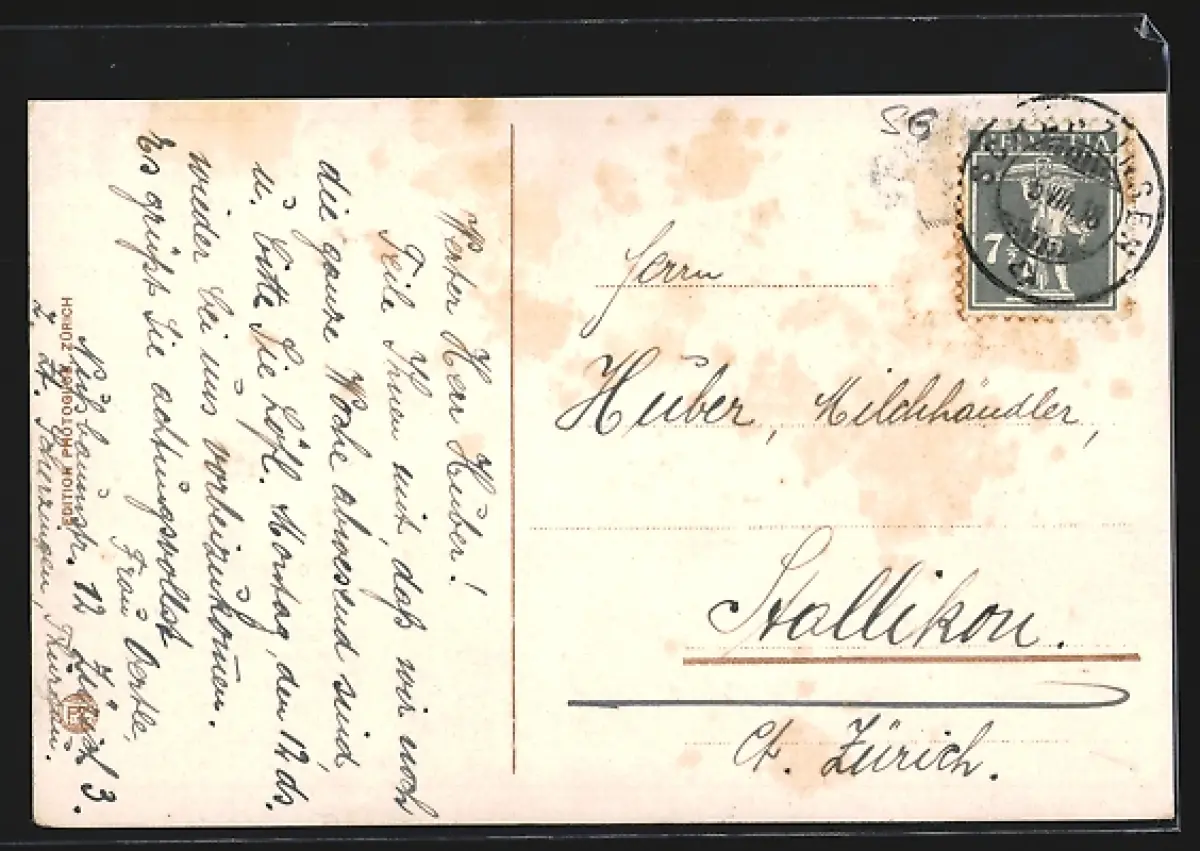 Werter Herr Huber!
Teile Ihnen mit, daß wir noch
die ganze Woche abwesend sind,
u. bitte Sie höfl. Montag, den 12 ds.
wieder bei uns vorbeizukom̄en.
Es grüßt Sie achtungsvollst
Frau
Nußbaumstr. 12 Zürich 3.
z. Zt. Thurgau.
EDITION PHOTOGLOB, ZÜRICH
HELVETIA
7½
Herrn
Huber, Milchhändler,
Stallikon.
Ct. Zürich.